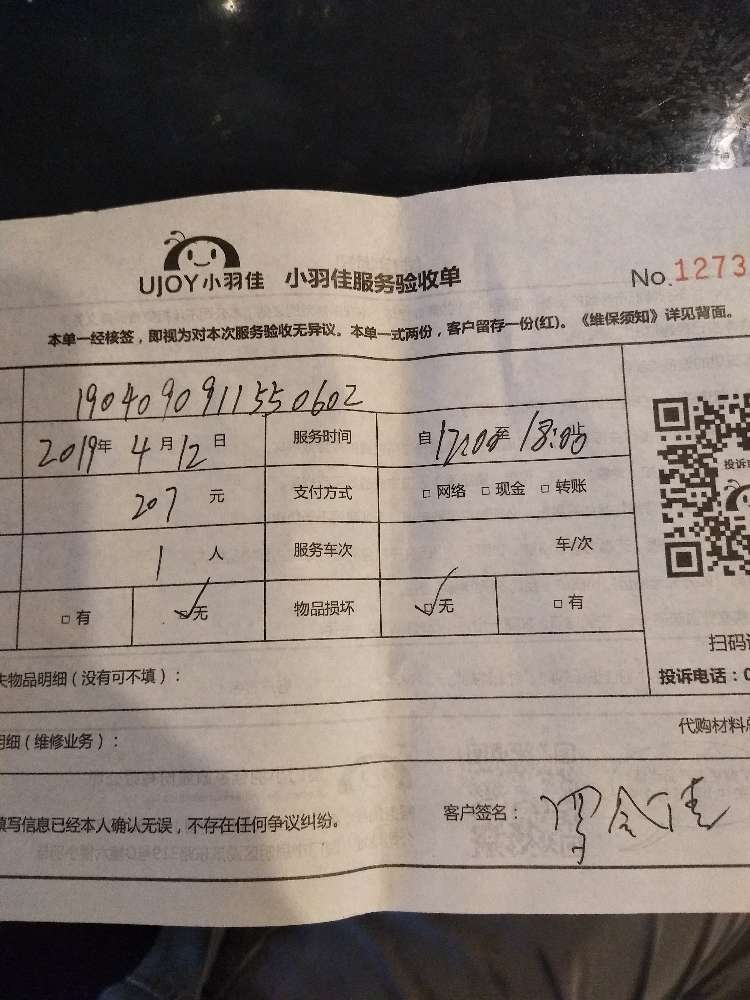 UJOY小羽佳 小羽佳服务验收单 No.1273
本单一经核签，即视为对本次服务验收无异议。本单一式两份，客户留存一份(红)。《维保须知》详见背面。
1904090911550602
2019年 4月12日 服务时间 自17:00至18:00止
207 元 支付方式 □网络 □现金 □转账
1 人 服务车次 车/次
□有 ☑无 物品损坏 ☑无 □有
投诉
扫码
失物品明细（没有可不填）： 投诉电话：0
明细（维修业务）： 代购材料总
填写信息已经本人确认无误，不存在任何争议纠纷。 客户签名：